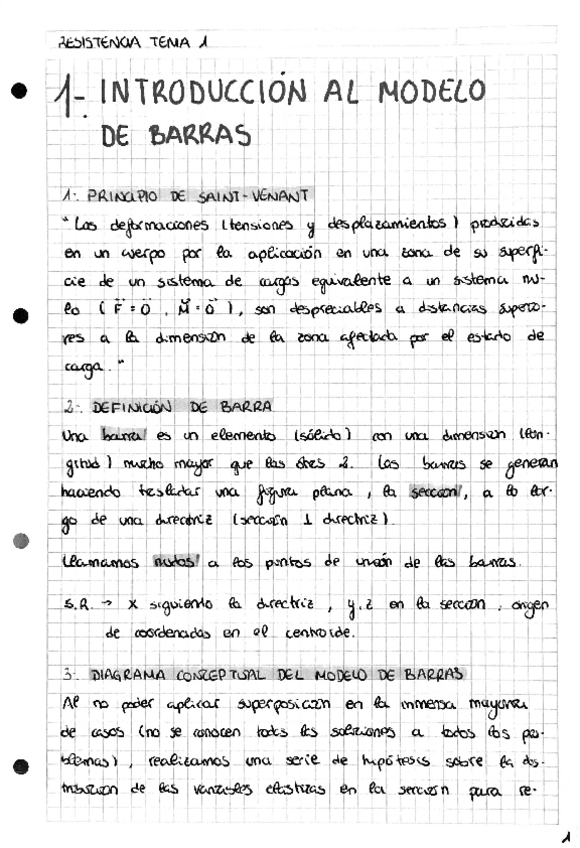 RESISTENCIA TEMA 1
1- INTRODUCCIÓN AL MODELO
DE BARRAS
1- PRINCIPIO DE SAINT-VENANT
"Las deformaciones (tensiones y desplazamientos) producidas
en un cuerpo por la aplicación en una zona de su superfi-
cie de un sistema de cargas equivalente a un sistema nu-
lo (F = 0, M = 0), son despreciables a distancias superio-
res a la dimensión de la zona afectada por el estado de
carga."
2- DEFINICIÓN DE BARRA
Una barra es un elemento (sólido) con una dimensión (lon-
gitud) mucho mayor que las otras 2. Las barras se generan
haciendo trasladar una figura plana, la sección, a lo lar-
go de una directriz (sección ⊥ directriz).
Llamamos nudos a los puntos de unión de las barras.
S.R. → x siguiendo la directriz, y, z en la sección, origen
de coordenadas en el centroide.
3- DIAGRAMA CONCEPTUAL DEL MODELO DE BARRAS
Al no poder aplicar superposición en la inmensa mayoría
de casos (no se conocen todas las soluciones a todos los pro-
blemas), realizamos una serie de hipótesis sobre la dis-
tribución de las variables elásticas en la sección para re-
1